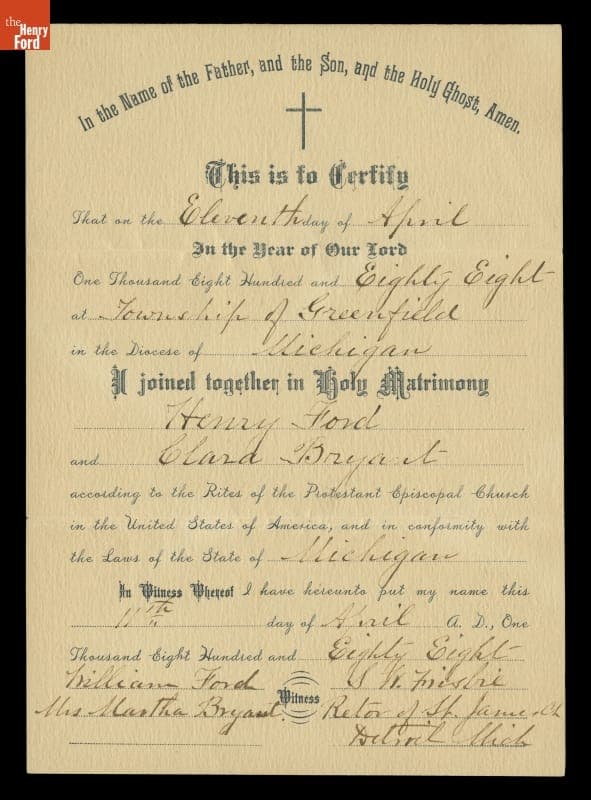 the
Henry
Ford
In the Name of the Father, and the Son, and the Holy Ghost, Amen.
This is to Certify
That on the Eleventh day of April
In the Year of Our Lord
One Thousand Eight Hundred and Eighty Eight
at Township of Greenfield
in the Diocese of Michigan
I joined together in Holy Matrimony
Henry Ford
and Clara Bryant
according to the Rites of the Protestant Episcopal Church
in the United States of America, and in conformity with
the Laws of the State of Michigan
In Witness Whereof I have hereunto put my name this
11th day of April A. D., One
Thousand Eight Hundred and Eighty Eight
William Ford Witness S W. Frisbie
Mrs Martha Bryant. Retor of St. James Ch
Detroit Mich